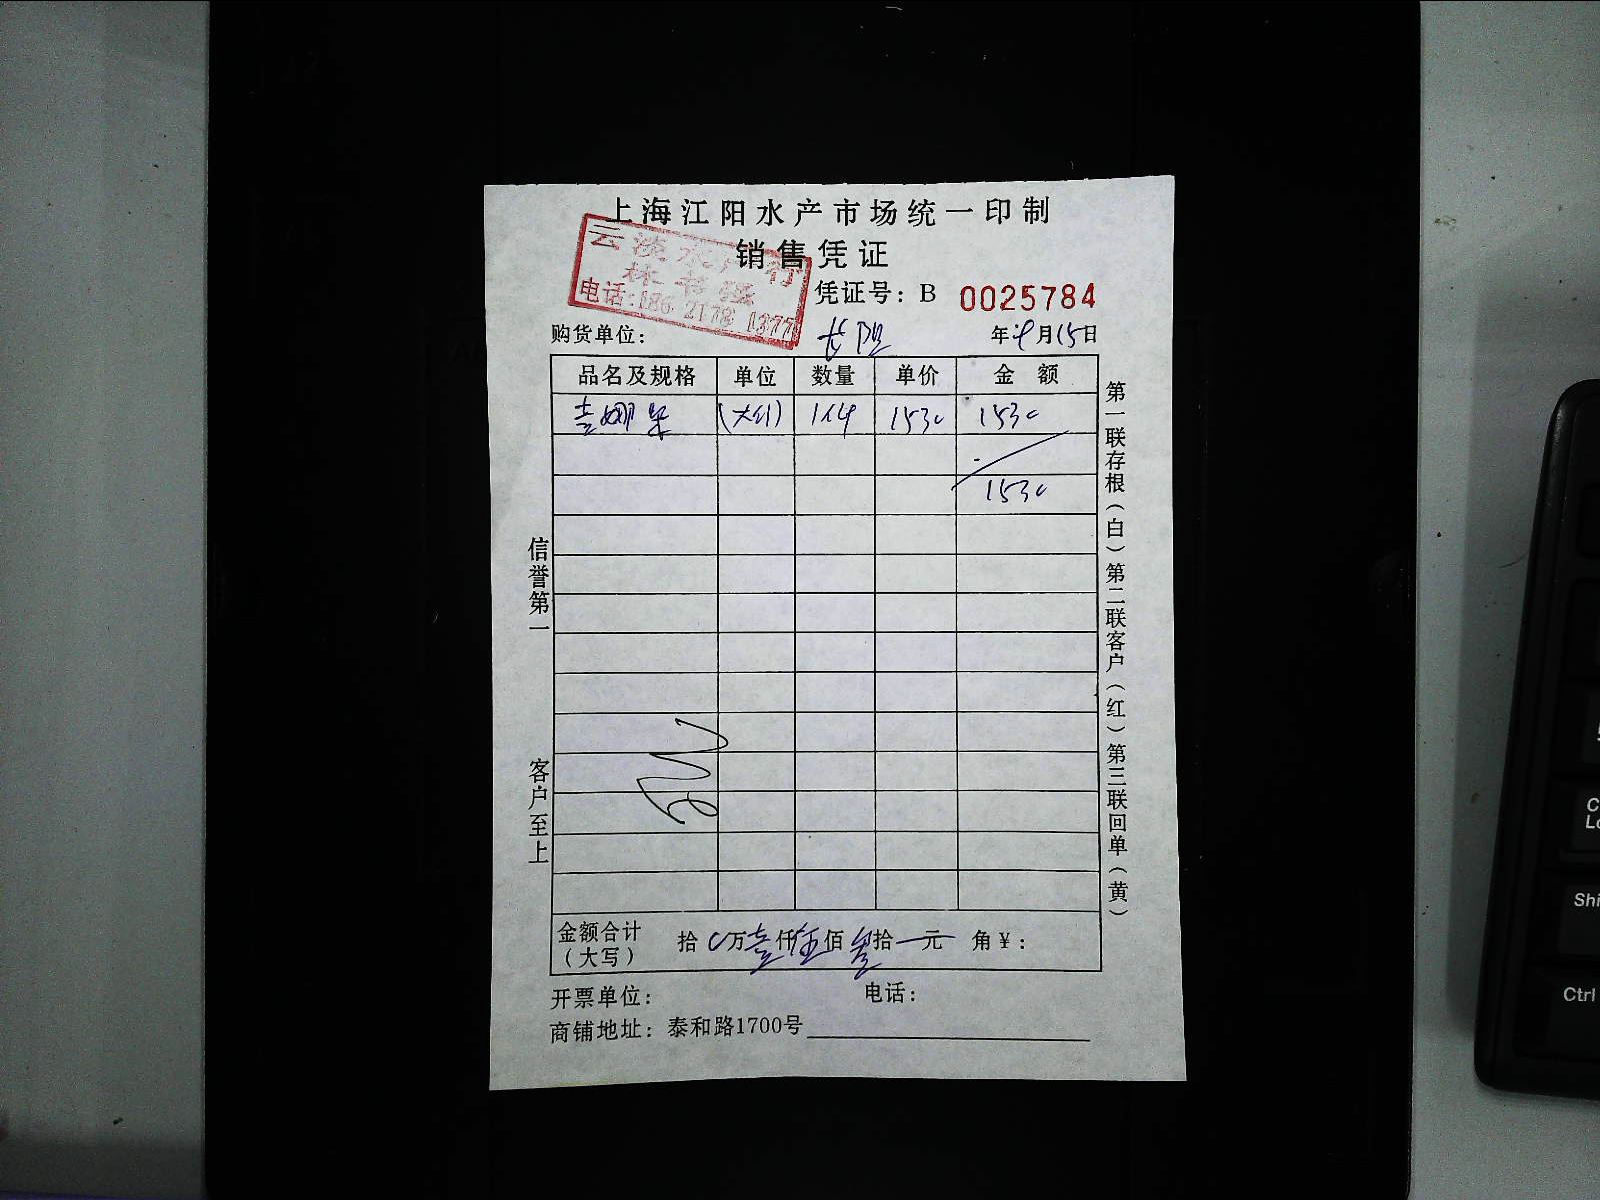 上海江阳水产市场统一印制
销售凭证
云淡水产行
电话:186 2178 1377
凭证号: B 0025784
购货单位:
年 9月15日
品名及规格 单位 数量 单价 金额
1530 1530
1530
信誉第一
客户至上
第一联存根(白)第二联客户(红)第三联回单(黄)
金额合计 拾0万壹仟伍佰叁拾一元 角¥:
(大写)
开票单位: 电话:
商铺地址: 泰和路1700号
C
Lo
Shi
Ctrl